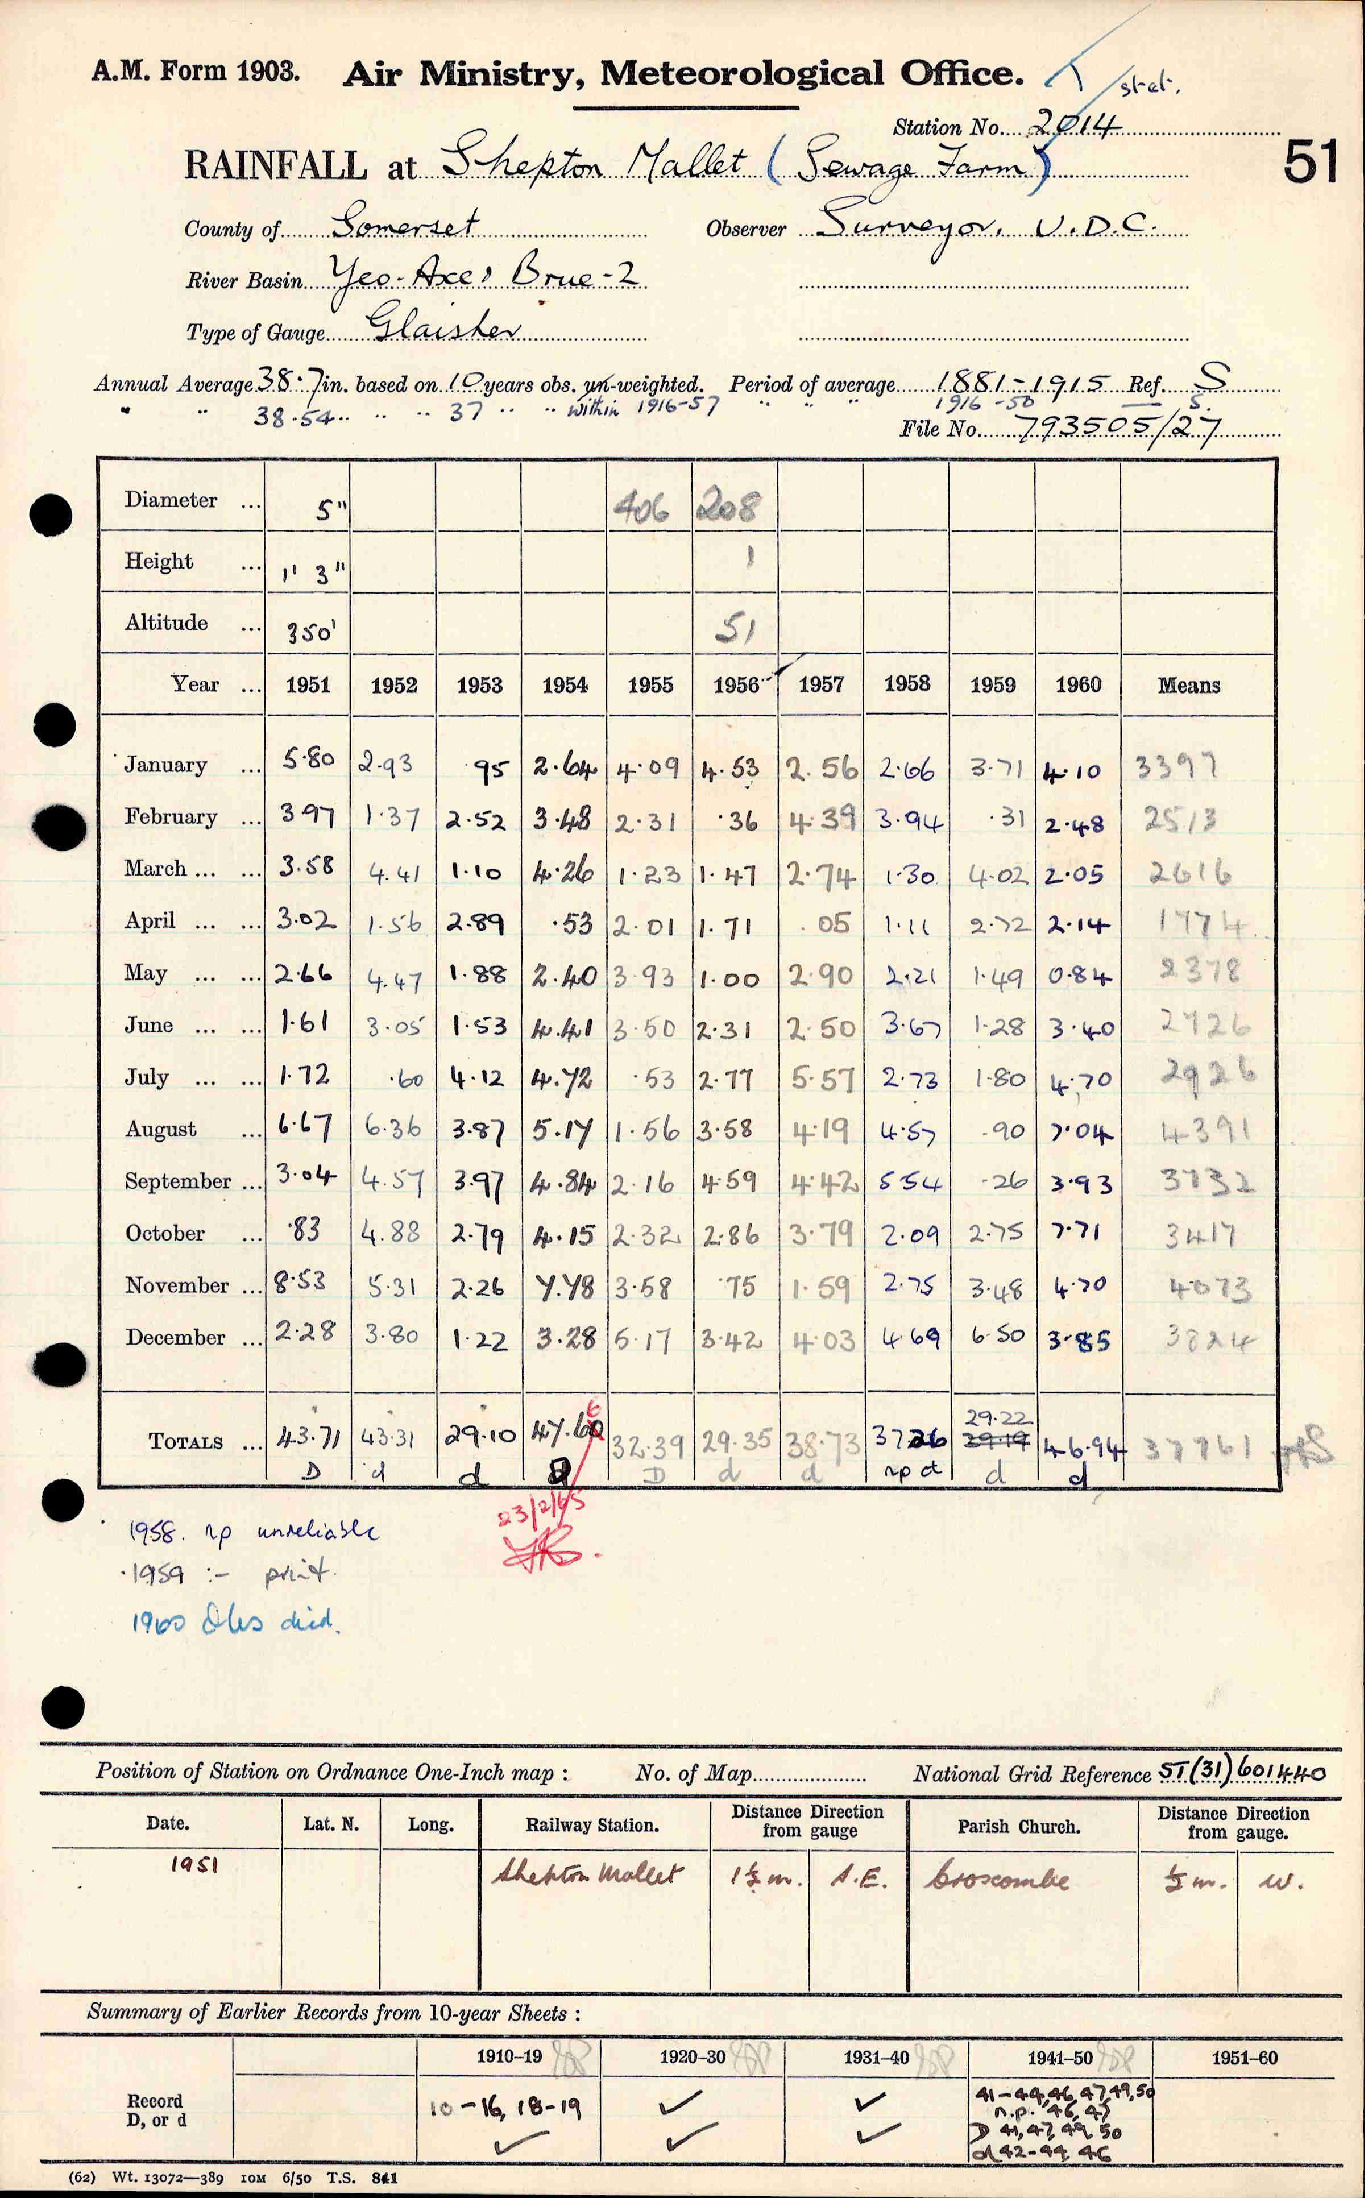 A.M. Form 1903. Air Ministry, Meteorological Office.
stet.
Station No. 2014
51
RAINFALL at Shepton Mallet (Sewage Farm)
County of Somerset Observer Surveyor, U.D.C.
River Basin Yeo-Axe, Brue-2
Type of Gauge Glaisher
Annual Average 38.7 in. based on 10 years obs. un-weighted. Period of average 1881-1915 Ref. S
" " 38.54 " " 37 " " within 1916-57 " " " 1916-50 — S.
File No. 793505/27
Diameter ... 5" 406 208
Height ... 1' 3" 1
Altitude ... 350' 51
Year ... 1951 1952 1953 1954 1955 1956 1957 1958 1959 1960 Means
January ... 5.80 2.93 .95 2.64 4.09 4.53 2.56 2.66 3.71 4.10 3397
February ... 3.97 1.37 2.52 3.48 2.31 .36 4.39 3.94 .31 2.48 2513
March ... ... 3.58 4.41 1.10 4.26 1.23 1.47 2.74 1.30 4.02 2.05 2616
April ... ... 3.02 1.56 2.89 .53 2.01 1.71 .05 1.11 2.72 2.14 1774
May ... ... 2.66 4.47 1.88 2.40 3.93 1.00 2.90 2.21 1.49 0.84 2378
June ... ... 1.61 3.05 1.53 4.41 3.50 2.31 2.50 3.67 1.28 3.40 2726
July ... ... 1.72 .60 4.12 4.72 .53 2.77 5.57 2.73 1.80 4.70 2926
August ... 6.67 6.36 3.87 5.17 1.56 3.58 4.19 4.57 .90 7.04 4391
September ... 3.04 4.57 3.97 4.84 2.16 4.59 4.42 5.54 .26 3.93 3732
October ... .83 4.88 2.79 4.15 2.32 2.86 3.79 2.09 2.75 7.71 3417
November ... 8.53 5.31 2.26 7.78 3.58 .75 1.59 2.75 3.48 4.70 4073
December ... 2.28 3.80 1.22 3.28 5.17 3.42 4.03 4.69 6.50 3.85 3824
6 29.22
TOTALS ... 43.71 43.31 29.10 47.60 32.39 29.35 38.73 37.26 29.19 46.94 37761
D d d D d d np d d d
23/2/65
1958. np unreliable
1959 :- print.
1960 Obs died.
Position of Station on Ordnance One-Inch map : No. of Map National Grid Reference ST(31)601440
Date. Lat. N. Long. Railway Station. Distance Direction from gauge Parish Church. Distance Direction from gauge.
1951 Shepton Mallet 1½ m. S.E. Croscombe ½ m. W.
Summary of Earlier Records from 10-year Sheets :
1910–19 1920–30 1931–40 1941–50 1951–60
Record D, or d 10-16, 18-19 ✓ ✓ ✓ ✓ ✓ 41-44,46,47,49,50
n.p. '46, 47
D 41,47,49,50
d 42-44, 46
(62) Wt. 13072—389 10M 6/50 T.S. 841